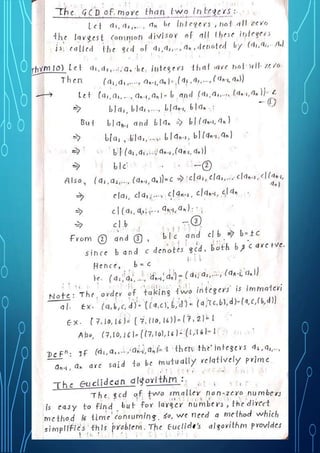 The GCD of more than two Integers :
Let a₁, a₂, ..., aₙ be integers, not all zero
the largest common divisor of all these integers
is called the gcd of a₁, a₂, ..., aₙ, denoted by (a₁, a₂, ..., aₙ)
thrm 10) Let a₁, a₂, ..., aₙ be integers that are not all zero
Then (a₁, a₂, ..., aₙ₋₁, aₙ) = (a₁, a₂, ..., (aₙ₋₁, aₙ))
→ Let (a₁, a₂, ..., aₙ₋₁, aₙ) = b and (a₁, a₂, ..., (aₙ₋₁, aₙ)) = c
—①
⇒ b|a₁, b|a₂, ..., b|aₙ₋₁, b|aₙ
But b|aₙ₋₁ and b|aₙ ⇒ b|(aₙ₋₁, aₙ)
⇒ b|a₁, b|a₂, ..., b|(aₙ₋₁, aₙ)
⇒ b|(a₁, a₂, ..., (aₙ₋₁, aₙ))
⇒ b|c —②
Also, (a₁, a₂, ..., (aₙ₋₁, aₙ)) = c ⇒ c|a₁, c|a₂, ..., c|(aₙ₋₁, aₙ)
⇒ c|a₁, c|a₂, ..., c|aₙ₋₁, c|aₙ
⇒ c|(a₁, a₂, ..., aₙ₋₁, aₙ)
⇒ c|b —③
From ② and ③, b|c and c|b ⇒ b=±c
since b and c denotes gcd, both b & c are +ve.
Hence, b = c
ie. (a₁, a₂, ..., aₙ₋₁, aₙ) = (a₁, a₂, ..., (aₙ₋₁, aₙ))
Note : The order of taking two integers is immateri
al. Ex.
Ex. (7, 10, 16) = (7, (10, 16)) = (7, 2) = 1
Also, (7, 10, 16) = ((7, 10), 16) = (1, 16) = 1
DEFⁿ : If (a₁, a₂, ..., aₙ) = 1 then the integers a₁, a₂, ...,
aₙ₋₁, aₙ are said to be mutually relatively prime
The Euclidean algorithm :
The gcd of two smaller non-zero numbers
is easy to find but for larger numbers, the direct
method is time consuming. so, we need a method which
simplifies this problem. The Euclid's algorithm provides